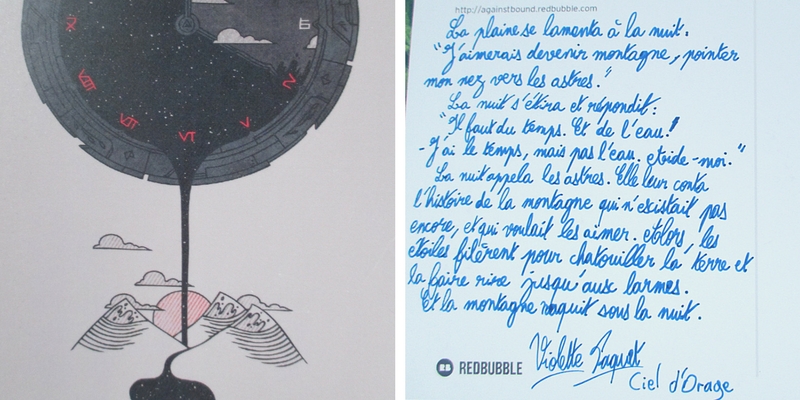 VIII
VII
VI
V
IV
http://againstbound.redbubble.com
La plaine se lamenta à la nuit :
"J'aimerais devenir montagne, pointer
mon nez vers les astres."
La nuit s'étira et répondit :
"Il faut du temps. Et de l'eau!"
- J'ai le temps, mais pas l'eau. etoide-moi."
La nuit appela les astres. Elle leur conta
l'histoire de la montagne qui n'existait pas
encore, et qui voulait les aimer. etolors, les
étoiles filèrent pour chatouiller la terre et
la faire rire jusqu'aux larmes.
Et la montagne naquit sous la nuit.
REDBUBBLE
Violette Paquet
Ciel d'Orage